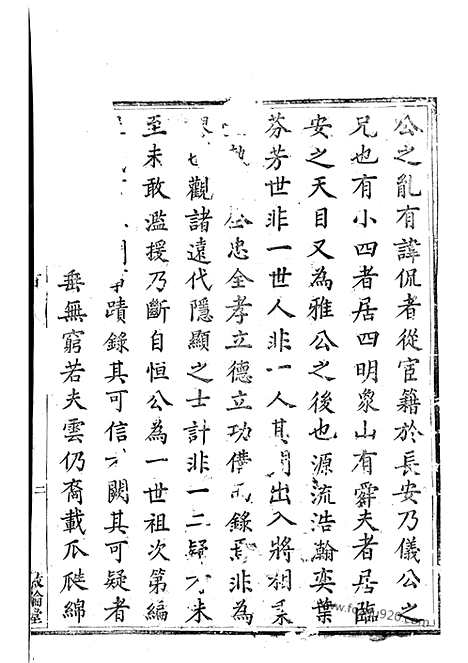 公之亂有諱侃者從宦籍於長安乃儀公之
兄也有小四者居四明象山有辭夫者居臨
安之天目又為雅公之後也源流浩瀚奕葉
芬芳世非一世人非一人其間出入將相
忠全孝立德立功備 錄 非為
觀諸遠代隱顯之士計非一二疑 未
至未敢濫援乃斷自恒公為一世祖次第編
蹟錄其可信 闕其可疑者
垂無窮若夫雲仍裔載瓜瓞綿
二